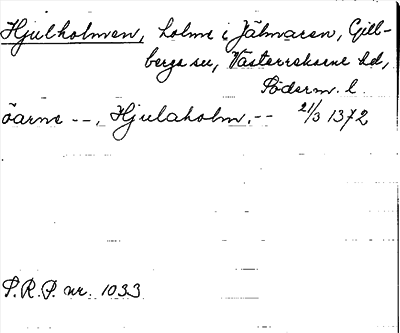 Hjulholmen, holme i Jälmaren, Gill-
berga sn, Västerrekarne hd,
Söderm. l.
öarne --, Hjulaholm, -- 21/3 1372
S.R.P. nr. 1033